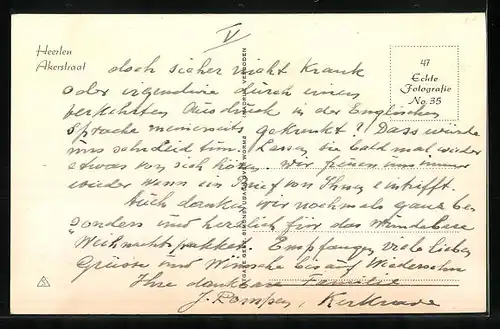 V
Heerlen
Akerstraat
47
Echte
Fotografie
No. 35
doch sicher nicht Krank
oder irgendwie durch einen
verkehrten Ausdruck in der Englischen
Sprache meinerseits gekrenkt? Dass würde
uns sehr leid tun. Lassen Sie bald mal wieder
etwas von sich hören. wir freuen uns immer
wieder wenn ein Brief von Ihnen eintrifft.
Auch danken wir nochmals ganz be-
sonders und herzlich für das Wunderbare
Weihnachtspakket. Empfangen viele lieben
Grüsse und Wünsche bis auf Wiedersehn
Ihre dankbare Familie
J. Pompen, Kerkrade
NADRUK VERBODEN